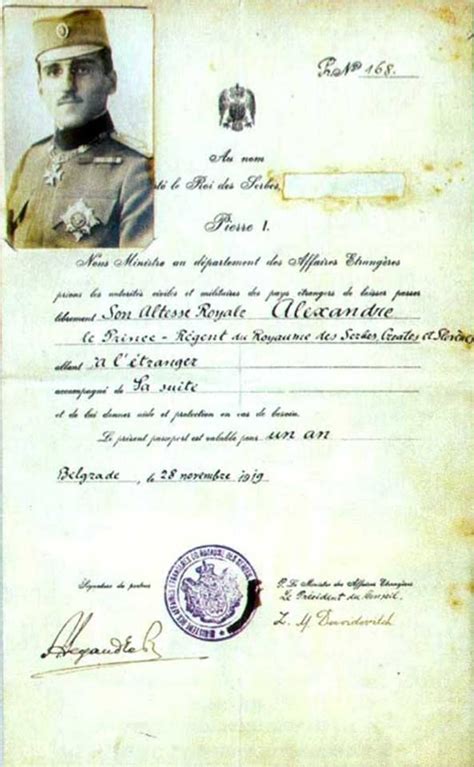 P. Nº 168.
Au nom
té le Roi des Serbes,
Pierre I.
Nous Ministre au département des Affaires Etrangères
prions les autorités civiles et militaires des pays étrangers de laisser passer
librement Son Altesse Royale Alexandre
le Prince-Régent du Royaume des Serbes, Croates et Slovènes
allant à l'étranger
accompagné de Sa suite
et de lui donner aide et protection en cas de besoin.
Le présent passeport est valable pour un an
Belgrade, le 28 novembre 1919
Signature du porteur
P. Le Ministre des Affaires Etrangères
Le Président du Conseil.
L. M Davidovitch
Alexandre